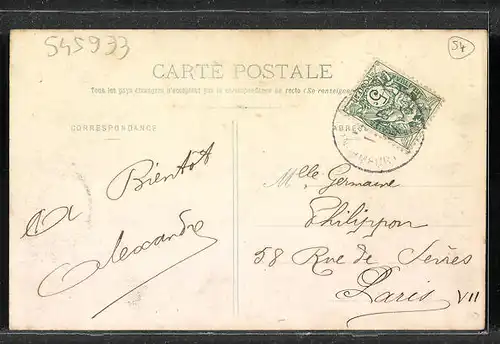 545933
54
CARTE POSTALE
Tous les pays étrangers n'acceptent pas la correspondance au recto (Se renseigner
CORRESPONDANCE
ADRES
A Bientot
Alexandre
Mlle Germaine
Philippon
58 Rue de Sèvres
Paris VII